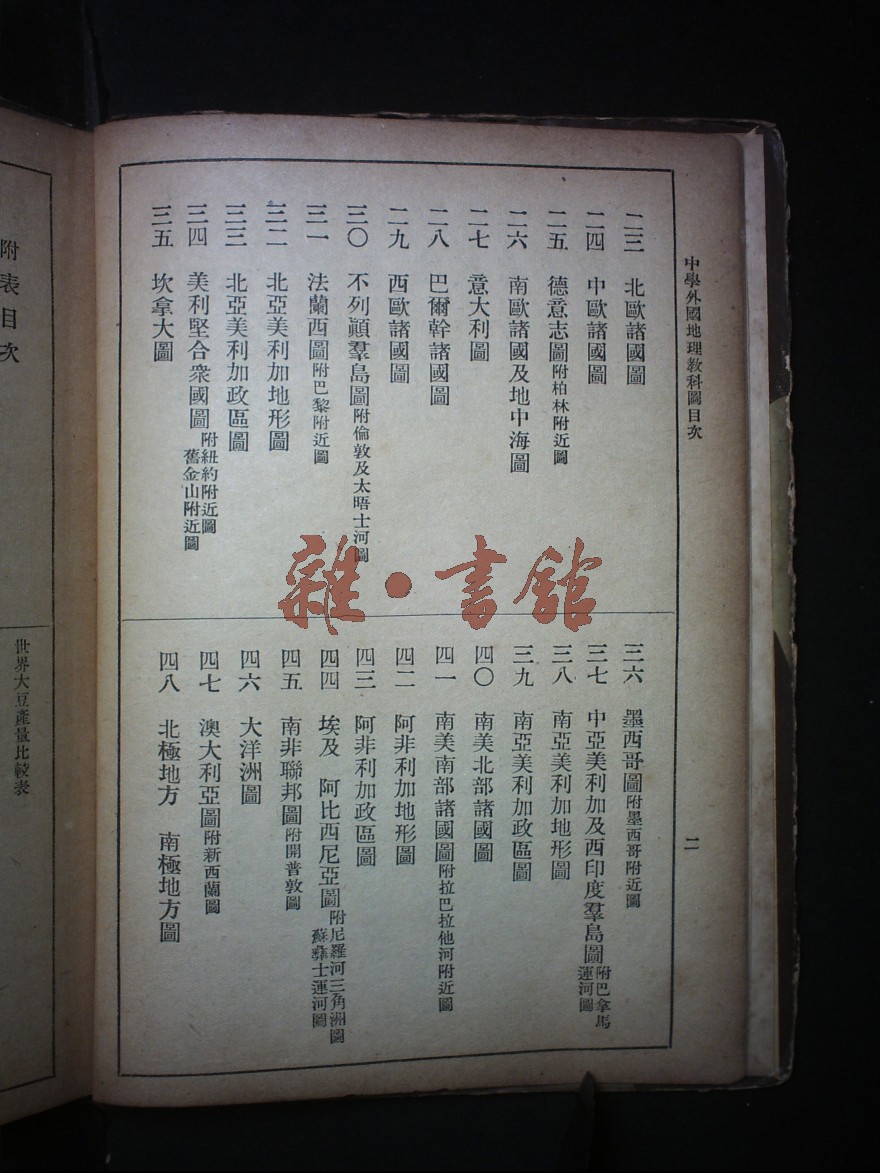 中學外國地理教科圖目次
二
二三 北歐諸國圖
二四 中歐諸國圖
二五 德意志圖附柏林附近圖
二六 南歐諸國及地中海圖
二七 意大利圖
二八 巴爾幹諸國圖
二九 西歐諸國圖
三〇 不列顚羣島圖附倫敦及太晤士河圖
三一 法蘭西圖附巴黎附近圖
三二 北亞美利加地形圖
三三 北亞美利加政區圖
三四 美利堅合衆國圖附紐約附近圖舊金山附近圖
三五 坎拿大圖
三六 墨西哥圖附墨西哥附近圖
三七 中亞美利加及西印度羣島圖附巴拿馬運河圖
三八 南亞美利加地形圖
三九 南亞美利加政區圖
四〇 南美北部諸國圖
四一 南美南部諸國圖附拉巴拉他河附近圖
四二 阿非利加地形圖
四三 阿非利加政區圖
四四 埃及 阿比西尼亞圖附尼羅河三角洲圖蘇彝士運河圖
四五 南非聯邦圖附開普敦圖
四六 大洋洲圖
四七 澳大利亞圖附新西蘭圖
四八 北極地方 南極地方圖
附表目次
世界大豆產量比較表
雜·書館